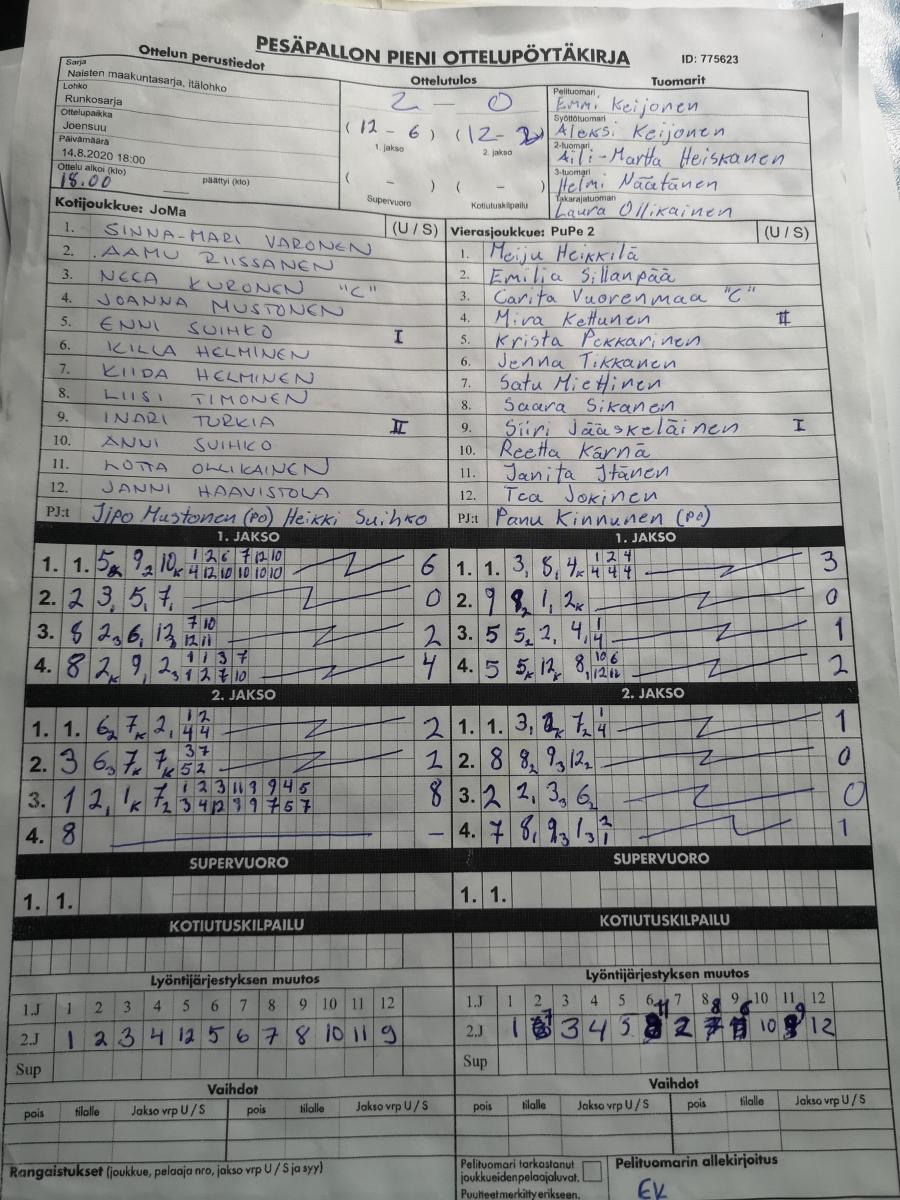 PESÄPALLON PIENI OTTELUPÖYTÄKIRJA
ID: 775623
Ottelun perustiedot
Sarja
Naisten maakuntasarja, itälohko
Lohko
Runkosarja
Ottelupaikka
Joensuu
Päivämäärä
14.8.2020 18:00
Ottelu alkoi (klo)
18.00 päättyi (klo)
Ottelutulos
2 - 0
(12 - 6) (12 - 2)
1. jakso 2. jakso
( - ) ( - )
Supervuoro Kotiutuskilpailu
Tuomarit
Pelituomari
Emmi Keijonen
Syöttötuomari
Aleksi Keijonen
2-tuomari
Aili-Martta Heiskanen
3-tuomari
Helmi Näätänen
Takarajatuomari
Laura Ollikainen
Kotijoukkue: JoMa (U / S)
1. SINNA-MARI VARONEN
2. AAMU RIISSANEN
3. NEEA KURONEN "C"
4. JOANNA MUSTONEN
5. ENNI SUIHKO I
6. KILLA HELMINEN
7. KIIDA HELMINEN
8. LIISI TIMONEN
9. INARI TURKIA II
10. ANNI SUIHKO
11. LOTTA OLLIKAINEN
12. JANNI HAAVISTOLA
PJ:t Jipo Mustonen (PO) Heikki Suihko
Vierasjoukkue: PuPe 2 (U / S)
1. Meiju Heikkilä
2. Emilia Sillanpää
3. Carita Vuorenmaa "C"
4. Mira Kettunen II
5. Krista Pekkarinen
6. Jenna Tikkanen
7. Satu Miettinen
8. Saara Sikanen
9. Siiri Jääskeläinen I
10. Reetta Kärnä
11. Janita Itänen
12. Tea Jokinen
PJ:t Panu Kinnunen (PO)
1. JAKSO
1. 1. 9 2 10 K 1 2 6 7 12 10 6
4 12 10 10 10 10
2. 2 3, 5, 7, 0
3. 8 2 3 6, 7 10 2
12 11
4. 8 2 K 9, 2 3 1 1 3 7 4
1 2 7 10
1. JAKSO
1. 1. 3, 8, 4 K 1 2 4 3
4 4 4
2. 9 1, 2 K 0
3. 5 5 2 2, 4, 1 1
4
4. 5 5 K 12 K 8, 10 6 2
12 12
2. JAKSO
1. 1. 6 2 7 K 2, 1 2 2
4 4
2. 3 6 3 7 K 7 K 3 7 2
5 2
3. 1 2, 1 K 7 2 1 2 3 11 9 9 4 5 8
3 4 12 9 9 7 5 7
4. 8 -
2. JAKSO
1. 1. 3, 7 2 1 1
4
2. 8 8 2 9 3 12 2 0
3. 2 2, 3 3 6 2 0
4. 7 8, 9 3 1 3 2 1
1
SUPERVUORO
1. 1.
SUPERVUORO
1. 1.
KOTIUTUSKILPAILU
KOTIUTUSKILPAILU
Lyöntijärjestyksen muutos
1.J 1 2 3 4 5 6 7 8 9 10 11 12
2.J 1 2 3 4 12 5 6 7 8 10 11 9
Sup
Lyöntijärjestyksen muutos
1.J 1 2 3 4 5 6 7 8 9 10 11 12
2.J 1 7 3 4 5 11 2 8 6 10 9 12
Sup
Vaihdot
pois tilalle Jakso vrp U / S pois tilalle Jakso vrp U / S
Vaihdot
pois tilalle Jakso vrp U / S pois tilalle Jakso vrp U / S
Rangaistukset (joukkue, pelaaja nro, jakso vrp U / S ja syy)
Pelituomari tarkastanut
joukkueiden pelaajaluvat.
Puutteet merkitty erikseen.
Pelituomarin allekirjoitus
EK